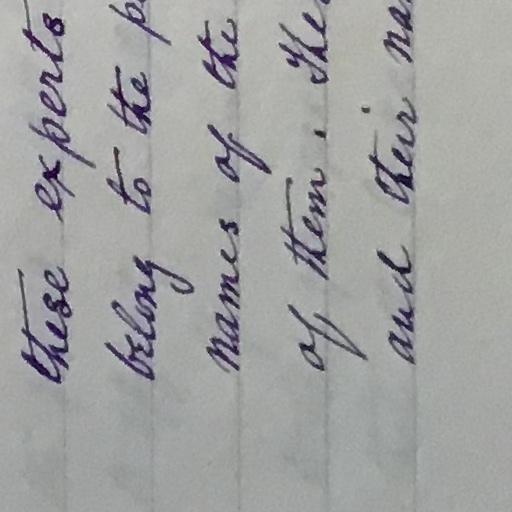 these experts
belong to the
names of the
of them.
and their